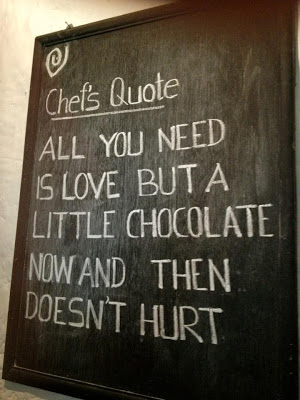 Chef's Quote
ALL YOU NEED
IS LOVE BUT A
LITTLE CHOCOLATE
NOW AND THEN
DOESN'T HURT